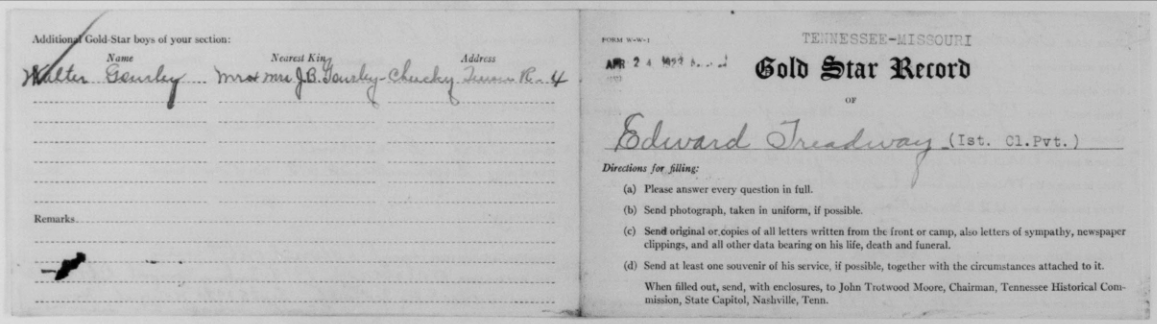 Additional Gold-Star boys of your section:
Name Nearest King Address
Walter Gousley Mr & Mrs J.B. Gousley - Chucky Tenn R - 4
Remarks
FORM W-W-1
TENNESSEE-MISSOURI
APR 24 1922
Gold Star Record
OF
Edward Treadway (Ist. Cl.Pvt.)
Directions for filling:
(a) Please answer every question in full.
(b) Send photograph, taken in uniform, if possible.
(c) Send original or copies of all letters written from the front or camp, also letters of sympathy, newspaper
clippings, and all other data bearing on his life, death and funeral.
(d) Send at least one souvenir of his service, if possible, together with the circumstances attached to it.
When filled out, send, with enclosures, to John Trotwood Moore, Chairman, Tennessee Historical Com-
mission, State Capitol, Nashville, Tenn.